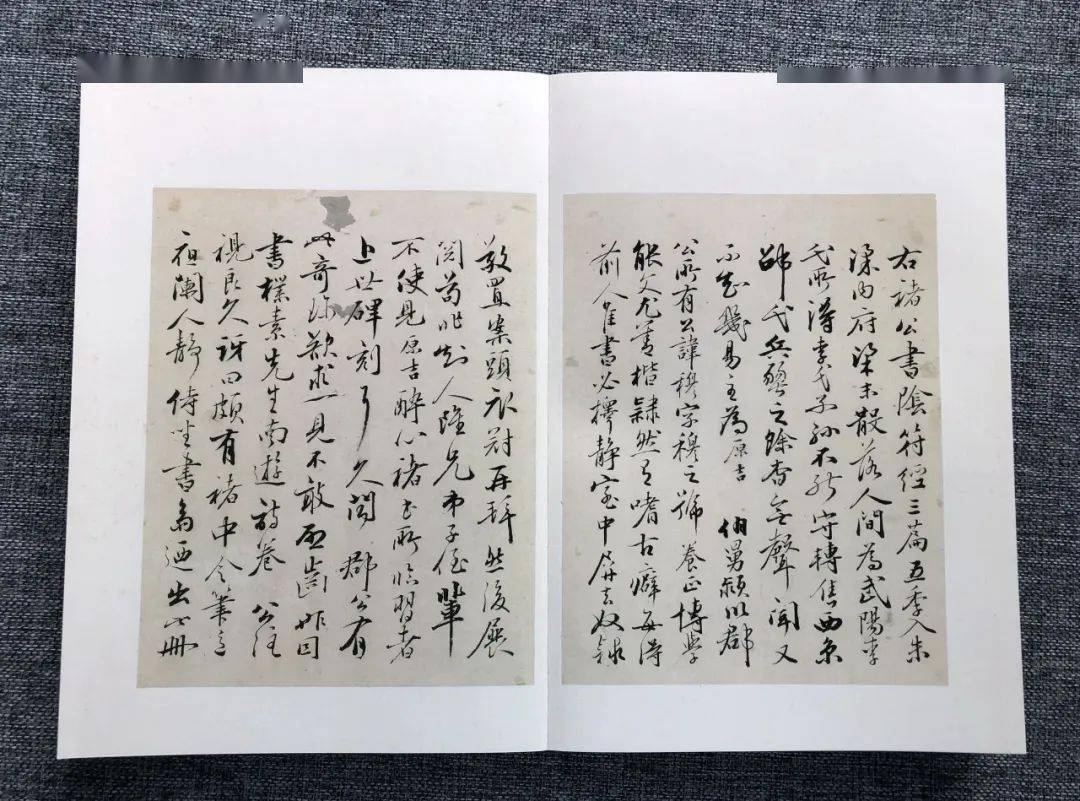 右褚公書陰符經三篇五季入朱
梁內府梁末散落人間為武陽李
氏所得李氏子孫不能守轉售西
師氏兵燹之餘杳無聲聞又
不知幾易主為原吉 伯舅潁川郡
公所有公諱穆字穆之號養正博學
能文尤善楷隸然有嗜古癖每得
前人隹書必擇靜室中屏去奴隸
敬置案頭衣冠再拜然後展
閱苟非知人雖兄弟子侄輩
不使見原吉醉心褚書所臨習者
上世碑刻耳久聞 郡公有
此奇珍欲求一見不敢啟齒昨因
書樸素先生南遊詩卷 公注
視良久訝曰頗有褚中令筆意
夜闌人靜侍坐書舍迺出此冊